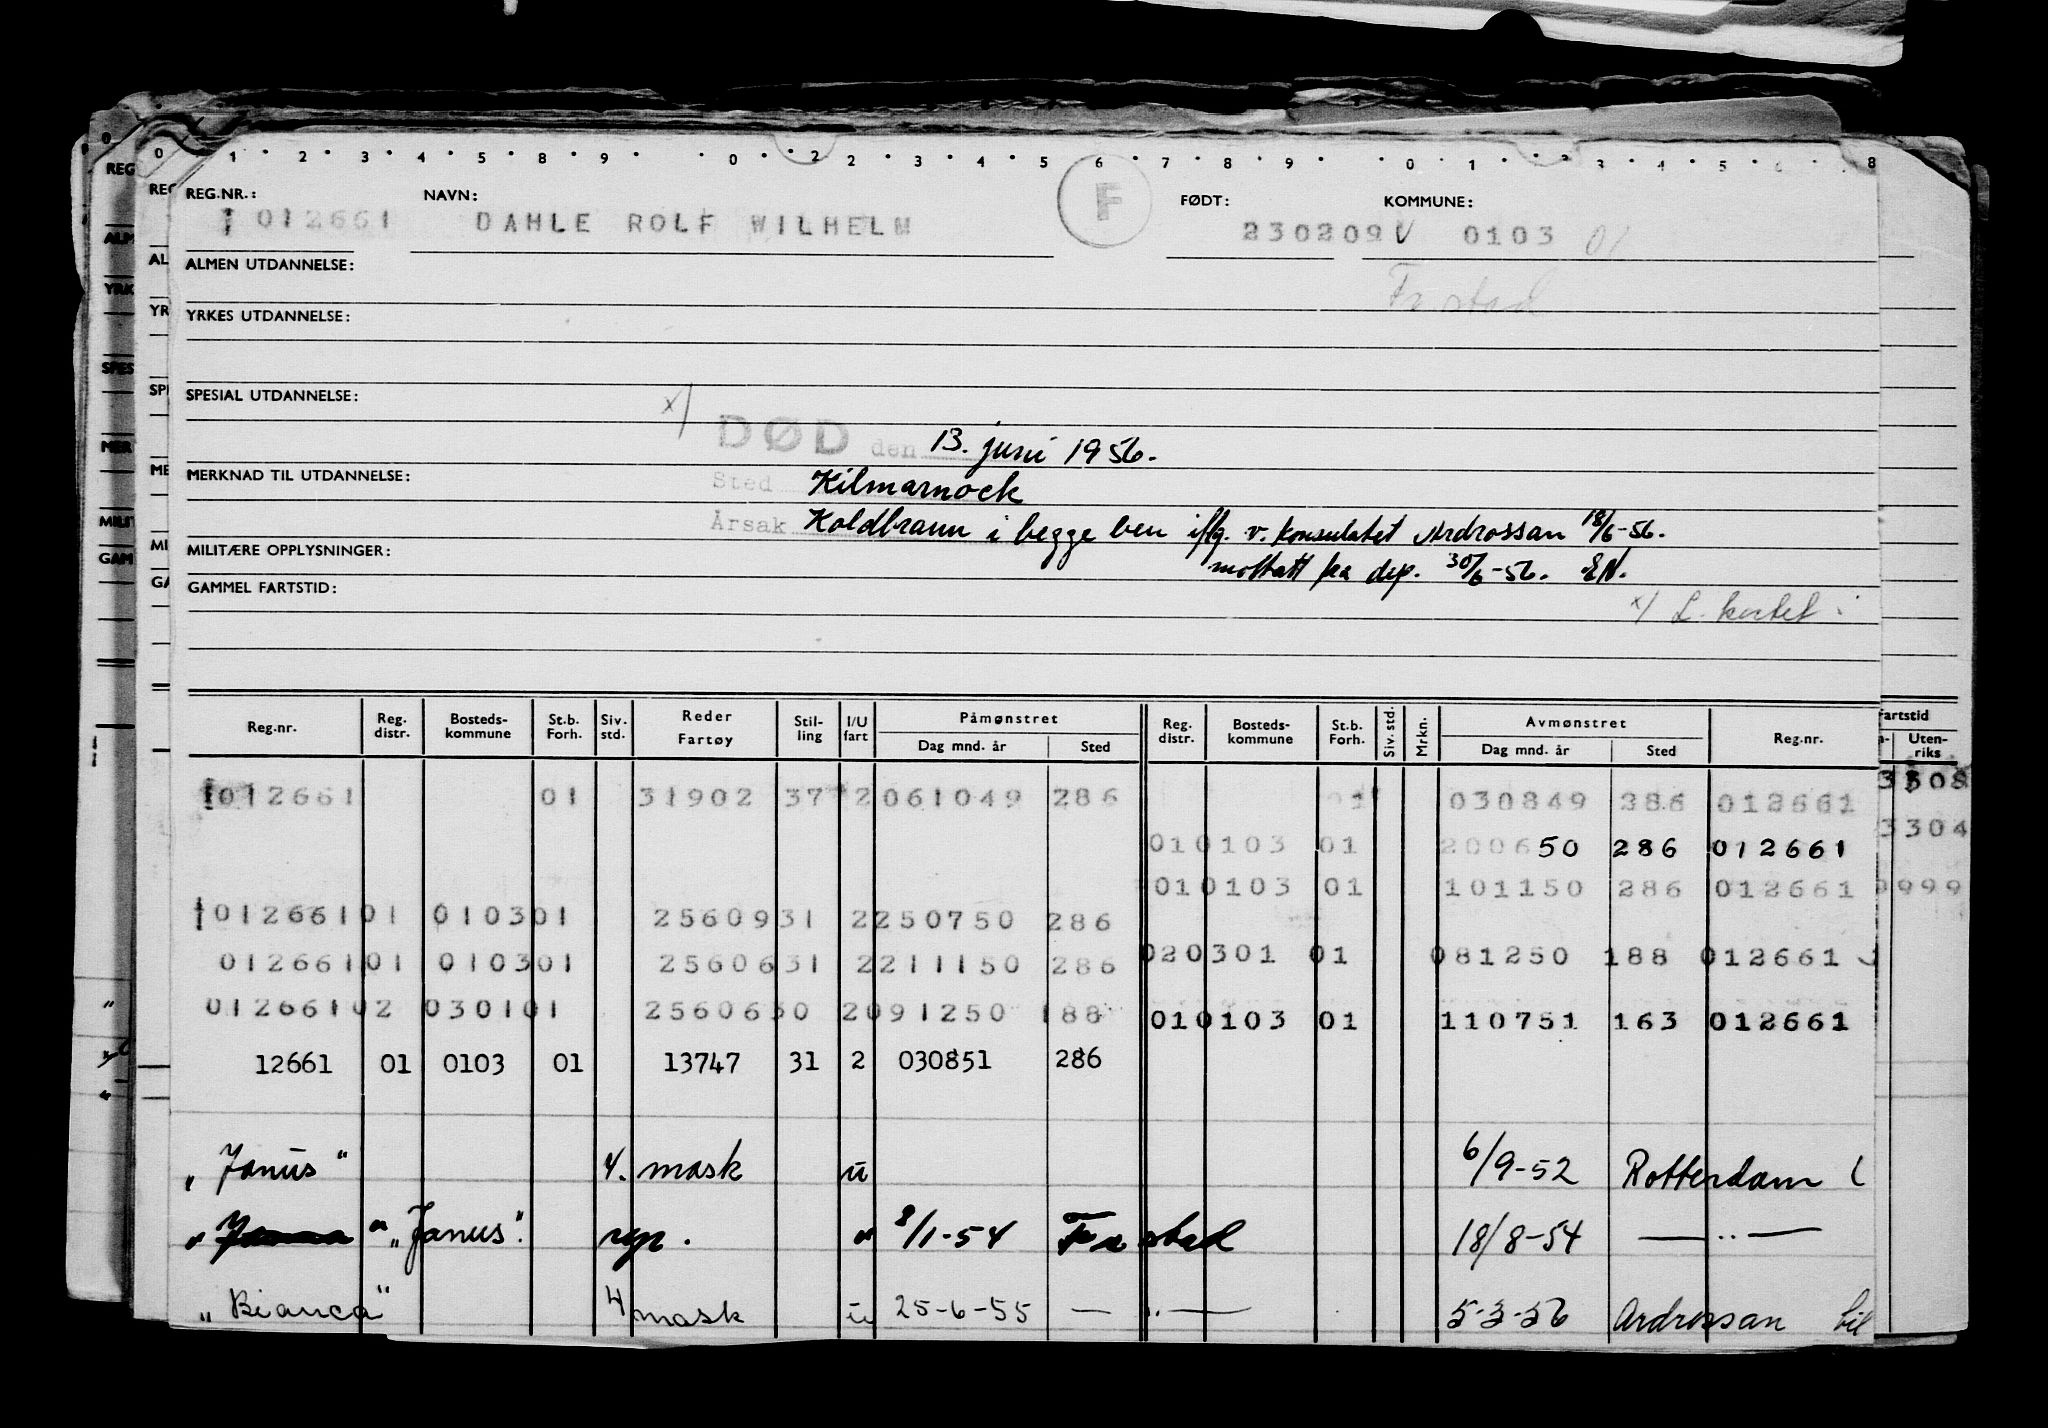 0 1 2 3 4 5 8 9 0 2 2 3 4 5 6 7 8 9 0 1 3 4 5 6 8
REG.NR.: NAVN: F FØDT: KOMMUNE:
012661 DAHLE ROLF WILHELM 230209 V 0103 01
ALMEN UTDANNELSE:
Fr.stad
YRKES UTDANNELSE:
SPESIAL UTDANNELSE:
x/ DØD den 13. juni 1956.
MERKNAD TIL UTDANNELSE: Sted Kilmarnock
Årsak Koldbrann i begge ben iflg. v. konsulatet Ardrossan 18/6-56.
MILITÆRE OPPLYSNINGER:
mottatt fra dep. 30/6-56. EN.
GAMMEL FARTSTID:
x/ L. kortet
Reg.nr. Reg. distr. Bosteds- kommune St.b. Forh. Siv. std. Reder Fartøy Stil- ling I/U fart Påmønstret Dag mnd. år Sted Reg. distr. Bosteds- kommune St.b. Forh. Siv. std. Mrkn. Avmønstret Dag mnd. år Sted Reg.nr. Fartstid Uten- riks
012661 01 31902 37 2 061049 286 01 030849 286 012661 3308
010103 01 200650 286 012661 3304
010103 01 101150 286 012661 9999
012661 01 0103 01 25609 31 2 250750 286
012661 01 0103 01 25606 31 2 211150 286 020301 01 081250 188 012661
012661 02 0301 01 25606 30 2 091250 188 010103 01 110751 163 012661
12661 01 0103 01 13747 31 2 030851 286
"Janus" 4. mask u 6/9-52 Rotterdam
" " "Janus". rep. " 8/1-54 Fr stad 18/8-54 — " —
"Bianca" 4 mask u 25-6-55 — " — 5-3-56 Ardrossan